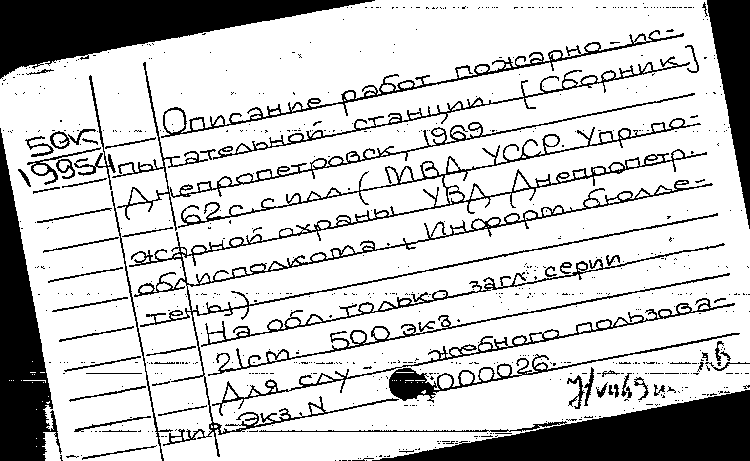 50к
19954
Описание работ пожарно-ис-
пытательной станции. [Сборник].
Днепропетровск, 1969.
62с. с илл. (МВД УССР. Упр. по-
жарной охраны УВД Днепропетр.
облисполкома. Информ. бюлле-
тень).
На обл. только загл. серии
21cm. 500 экз.
Для слу- жебного пользова-
ния. Экз. N 000026.